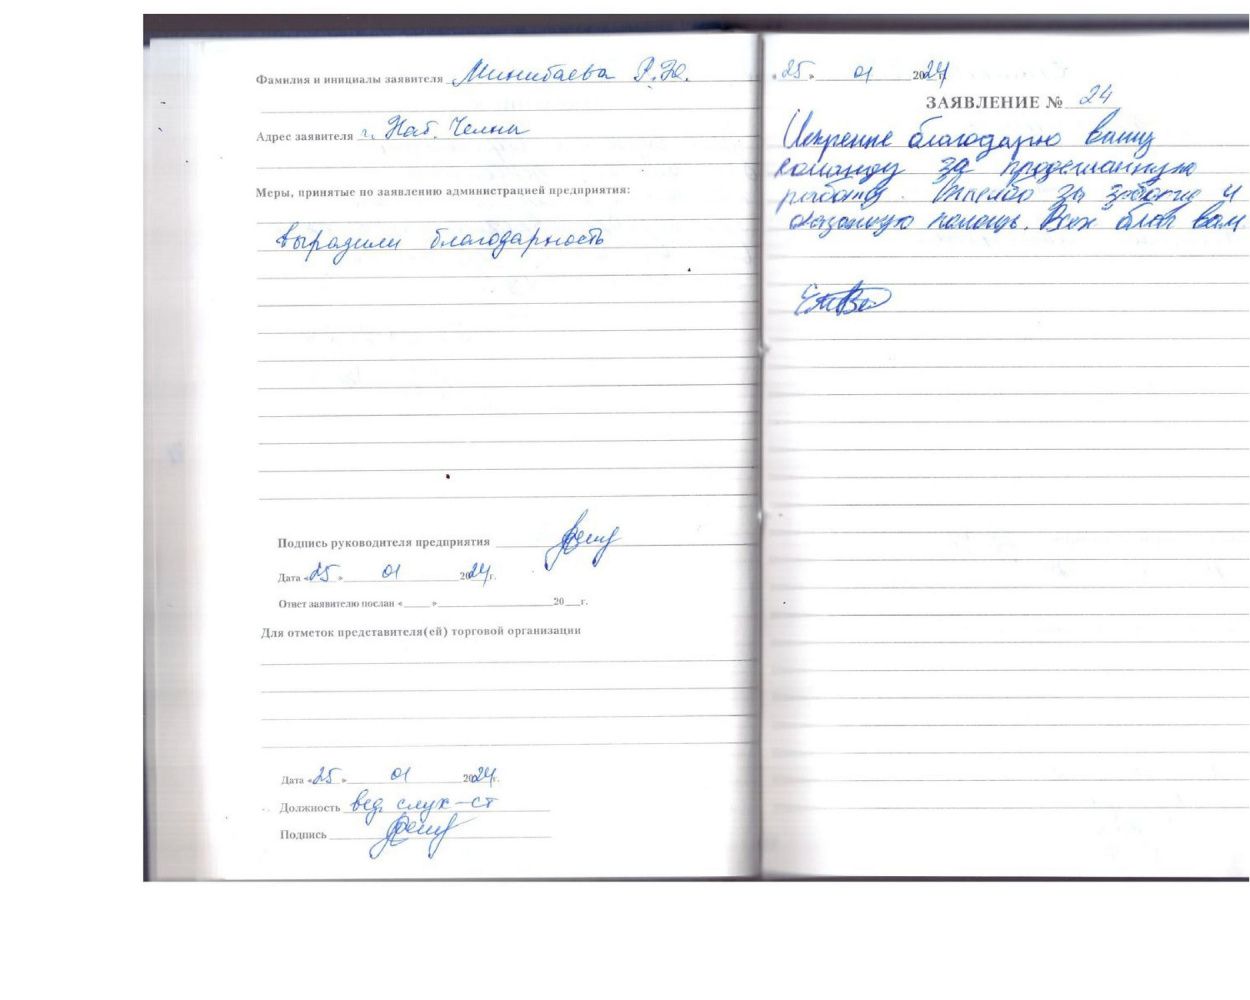 Фамилия и инициалы заявителя Минибаева Р.Ю.
Адрес заявителя г. Наб. Челны
Меры, принятые по заявлению администрацией предприятия:
выразили благодарность
Подпись руководителя предприятия
Дата «25» 01 2024г.
Ответ заявителю послан «____»____ 20__г.
Для отметок представителя(ей) торговой организации
Дата «25» 01 2024г.
Должность вед. слух-ст
Подпись
«25» 01 2024г.
ЗАЯВЛЕНИЕ № 24
Искренне благодарю вашу
команду за проделанную
работу. Спасибо за заботу и
оказанную помощь. Всех благ вам